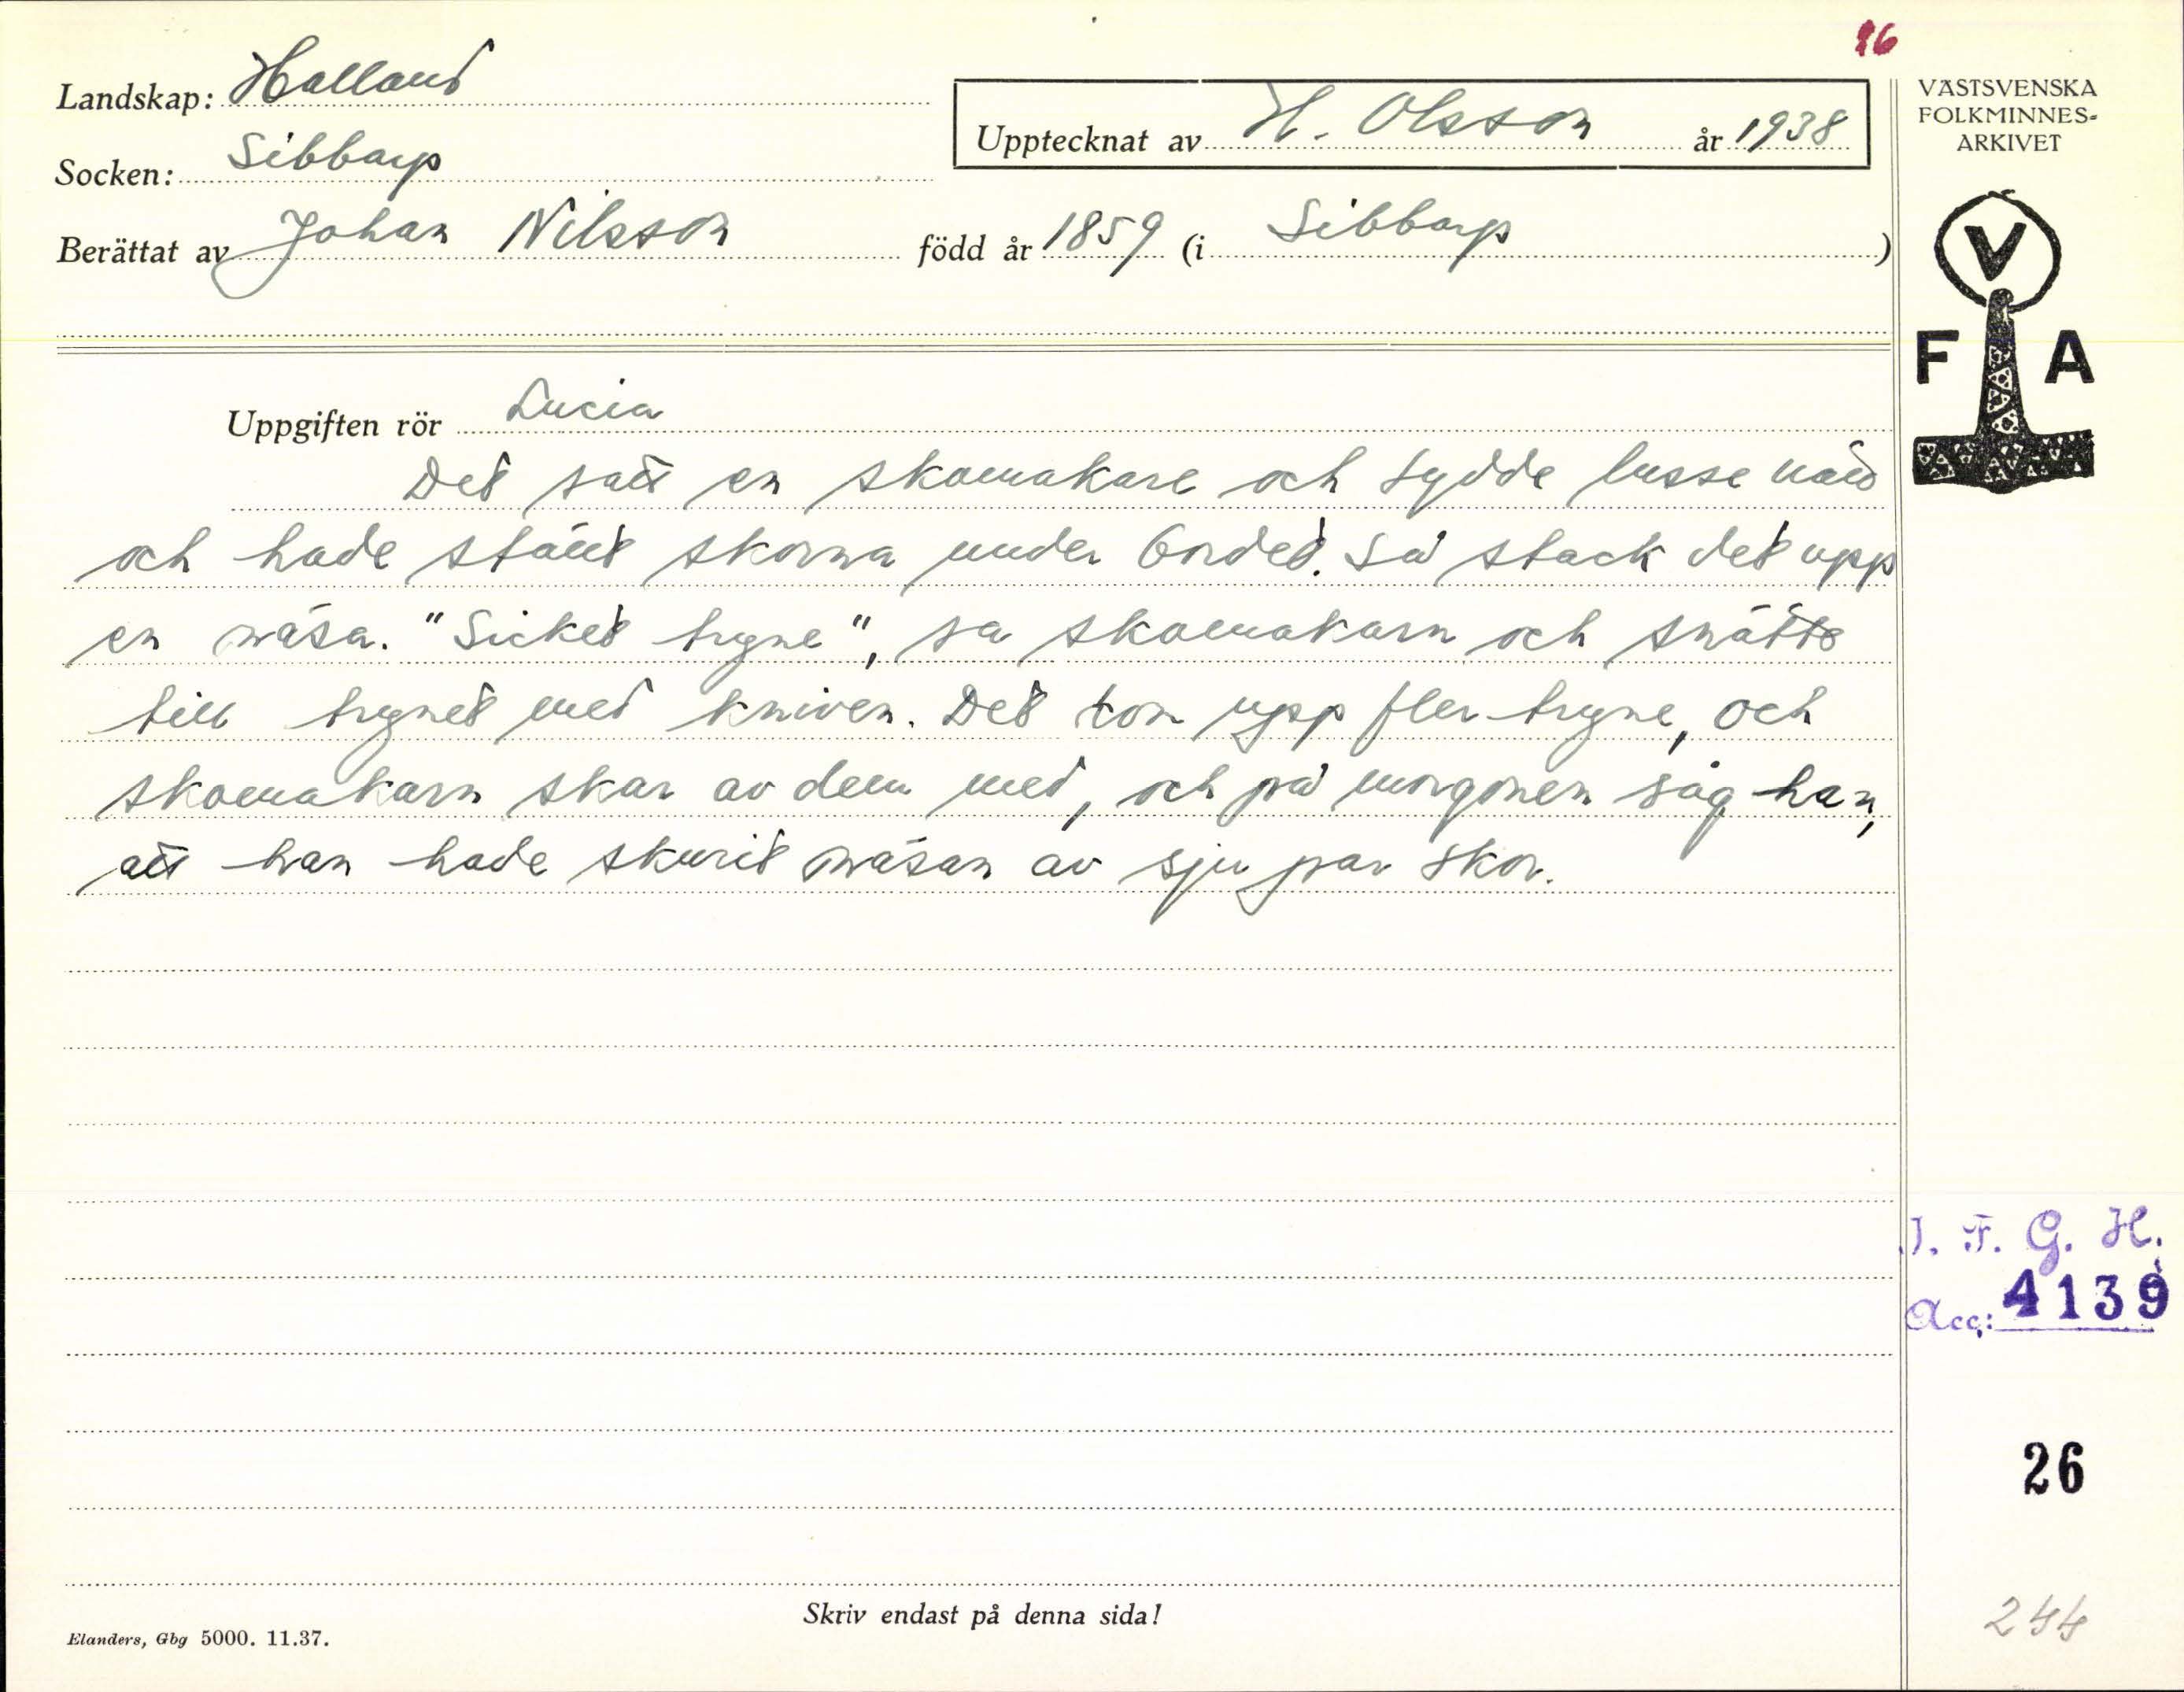 86
Landskap: Halland
Socken: Sibbarp
Upptecknat av H. Olsson år 1938
Berättat av Johan Nilsson född år 1859 (i Sibbarp)
VÄSTSVENSKA
FOLKMINNES-
ARKIVET
V
F A
Uppgiften rör Lucia
Det satt en skomakare och sydde lusse natt
och hade ställt skorna under bordet. Så stack det upp
en näsa. "Sicket tryne", sa skomakarn och snätte
till trynet med kniven. Det kom upp fler tryne, och
skomakarn skar av dem med, och på morgonen såg han,
att han hade skurit näsan av sju par skor.
I. F. G. H.
Acc: 4139
26
244
Skriv endast på denna sida!
Elanders, Gbg 5000. 11.37.